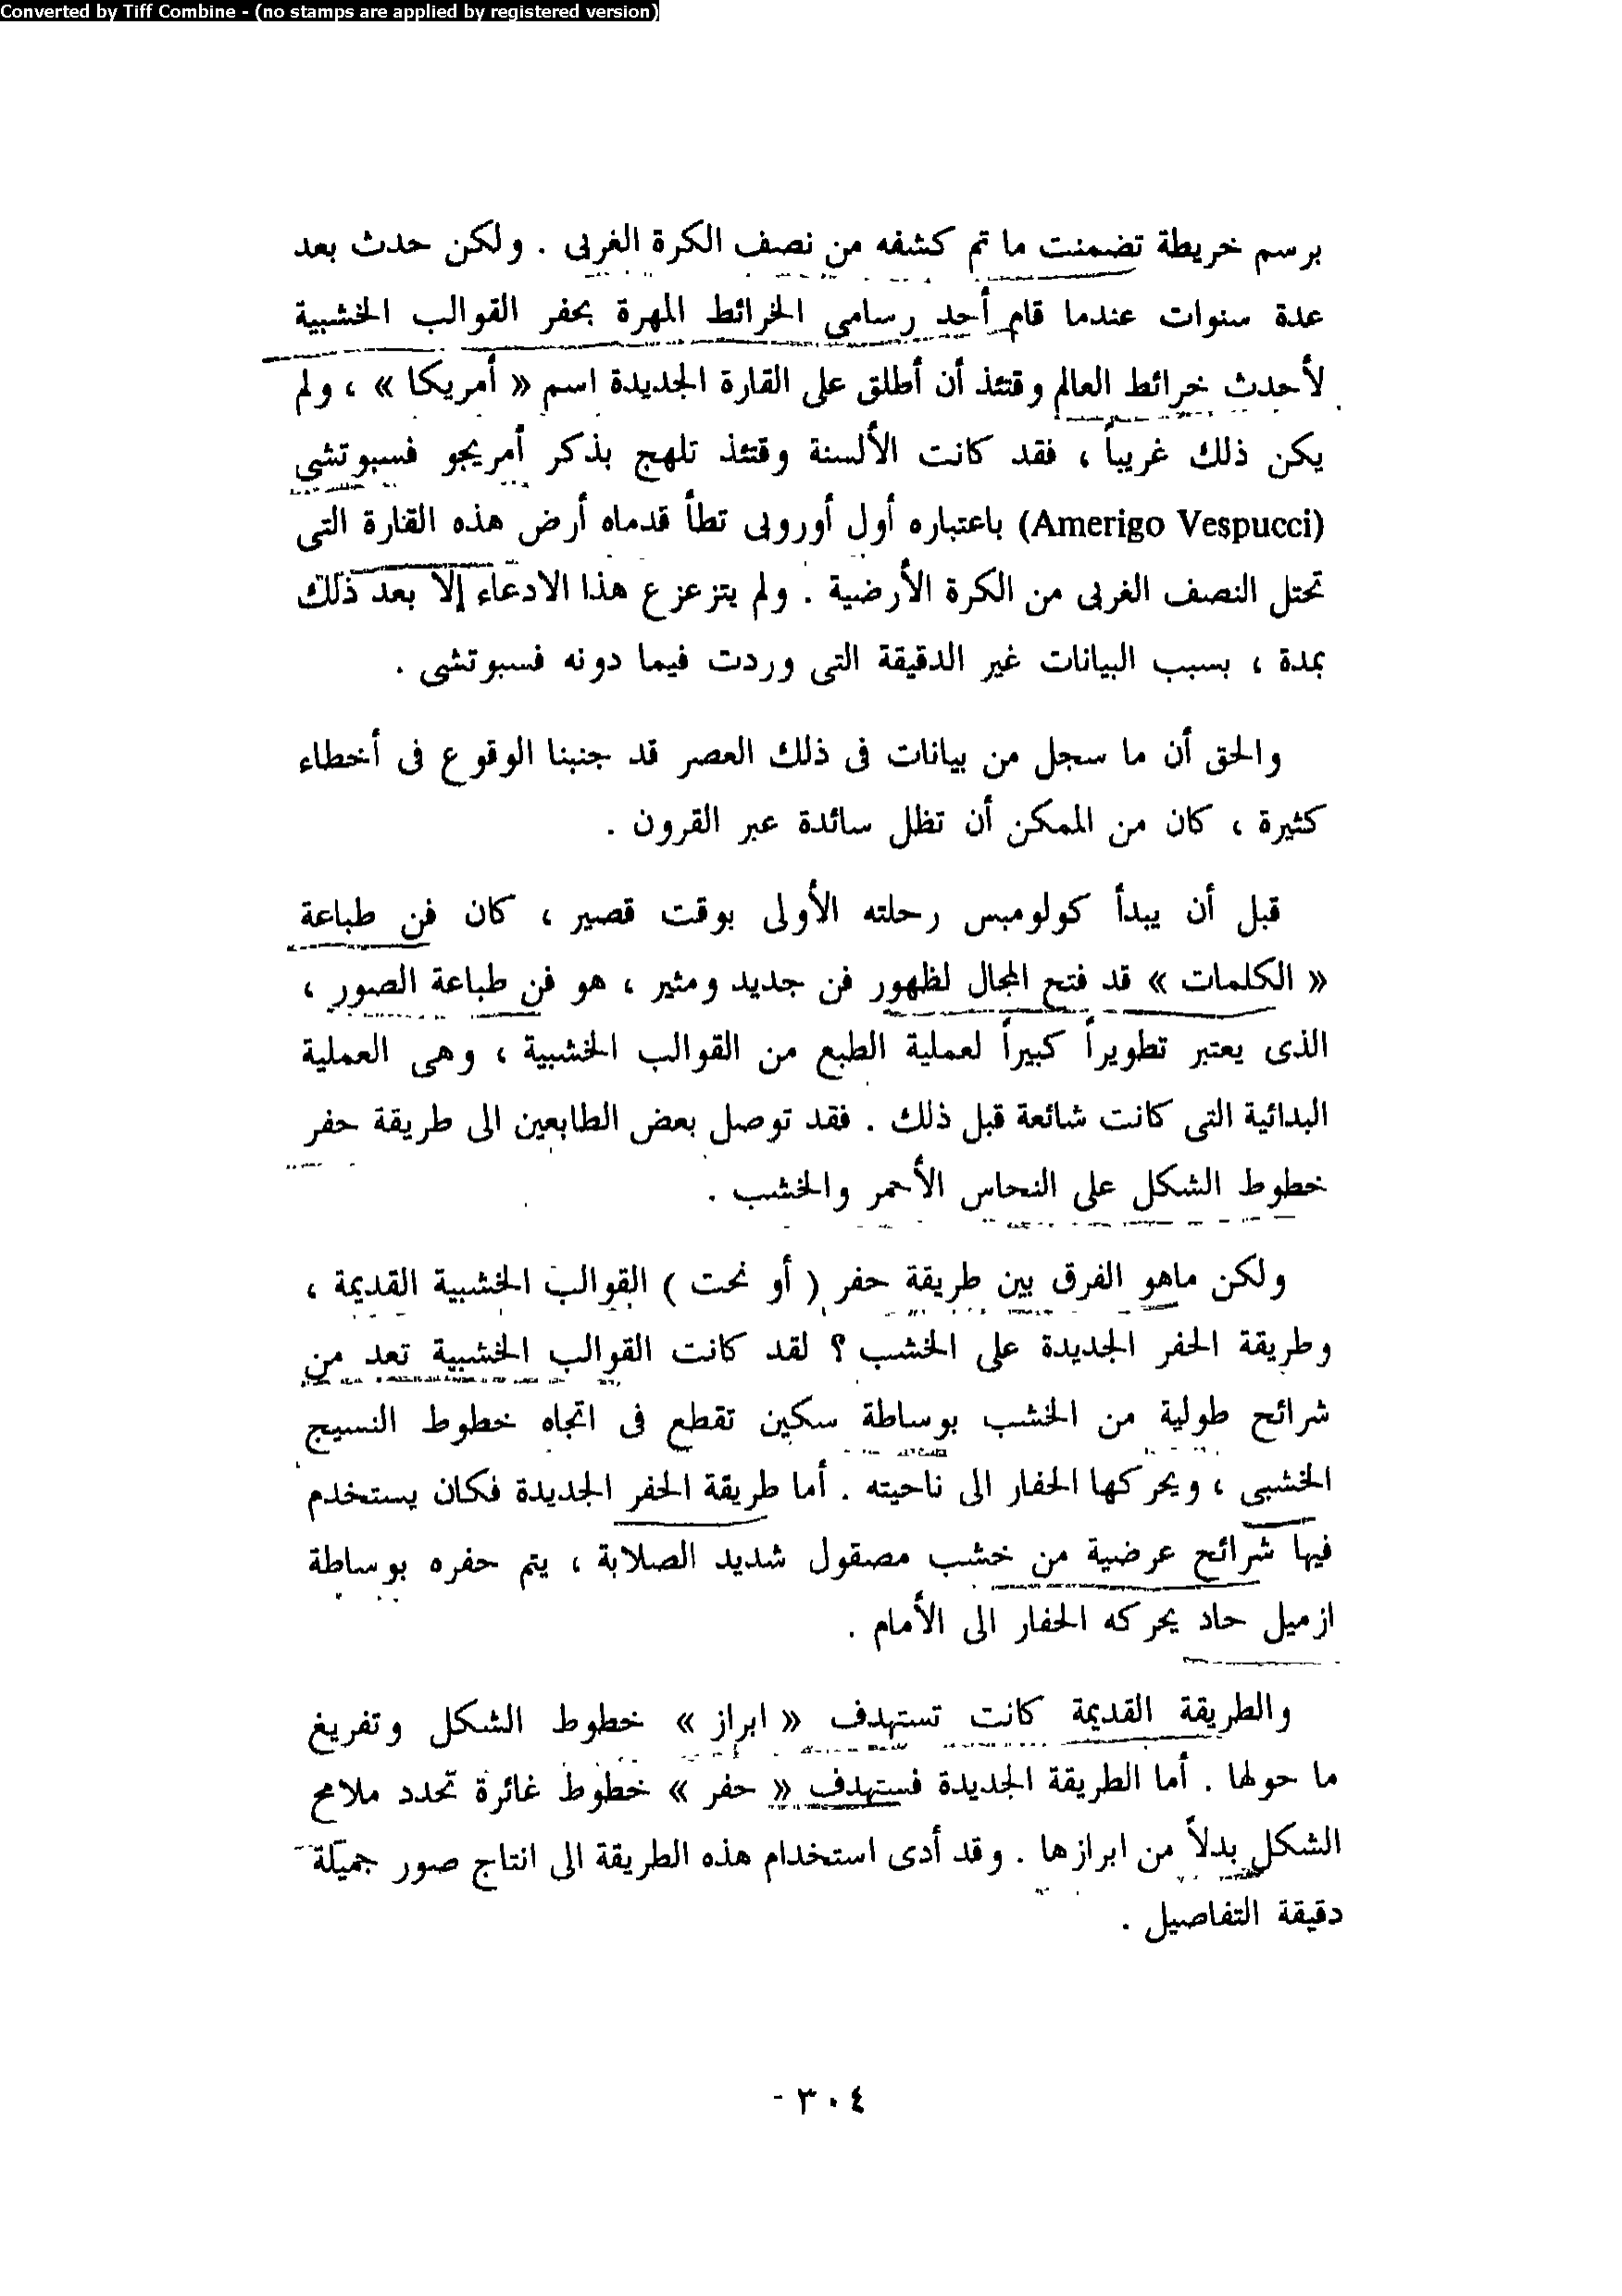 Converted by Tiff Combine - (no stamps are applied by registered version)
برسم خريطة تضمنت ما تم كشفه من نصف الكرة الغربى . ولكن حدث بعد
عدة سنوات عندما قام أحد رسامى الخرائط المهرة بحفر القوالب الخشبية
لأحدث خرائط العالم وقتئذ أن أطلق على القارة الجديدة اسم « أمريكا » ، ولم
يكن ذلك غريباً ، فقد كانت الألسنة وقتئذ تلهج بذكر أمريجو فسبوتشى
(Amerigo Vespucci) باعتباره أول أوروبى تطأ قدماه أرض هذه القارة التى
تحتل النصف الغربى من الكرة الأرضية . ولم يتزعزع هذا الادعاء إلا بعد ذلك
بمدة ، بسبب البيانات غير الدقيقة التى وردت فيما دونه فسبوتشى .
والحق أن ما سجل من بيانات فى ذلك العصر قد جنبنا الوقوع فى أخطاء
كثيرة ، كان من الممكن أن تظل سائدة عبر القرون .
قبل أن يبدأ كولومبس رحلته الأولى بوقت قصير ، كان فن طباعة
« الكلمات » قد فتح المجال لظهور فن جديد ومثير ، هو فن طباعة الصور ،
الذى يعتبر تطويراً كبيراً لعملية الطبع من القوالب الخشبية ، وهى العملية
البدائية التى كانت شائعة قبل ذلك . فقد توصل بعض الطابعين الى طريقة حفر
خطوط الشكل على النحاس الأحمر والخشب .
ولكن ماهو الفرق بين طريقة حفر ( أو نحت ) القوالب الخشبية القديمة ،
وطريقة الحفر الجديدة على الخشب ؟ لقد كانت القوالب الخشبية تعد من
شرائح طولية من الخشب بوساطة سكين تقطع فى اتجاه خطوط النسيج
الخشبى ، ويحركها الحفار الى ناحيته . أما طريقة الحفر الجديدة فكان يستخدم
فيها شرائح عرضية من خشب مصقول شديد الصلابة ، يتم حفره بوساطة
ازميل حاد يحركه الحفار الى الأمام .
والطريقة القديمة كانت تستهدف « ابراز » خطوط الشكل وتفريغ
ما حولها . أما الطريقة الجديدة فستهدف « حفر » خطوط غائرة تحدد ملامح
الشكل بدلاً من ابرازها . وقد أدى استخدام هذه الطريقة الى انتاج صور جميلة
دقيقة التفاصيل .
٣٠٤ -